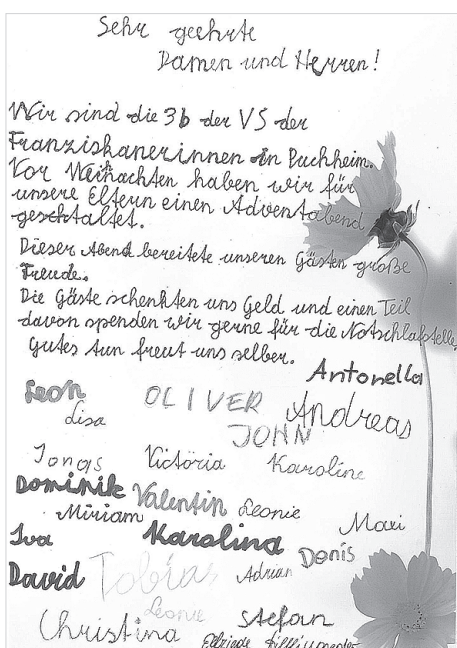 Sehr geehrte
Damen und Herren!
Wir sind die 3b der VS der
Franziskanerinnen in Puchheim.
Vor Weihnachten haben wir für
unsere Eltern einen Adventabend
gestaltet.
Dieser Abend bereitete unseren Gästen große
Freude.
Die Gäste schenkten uns Geld und einen Teil
davon spenden wir gerne für die Notschlafstelle.
Gutes tun freut uns selber.
Antonella
Leon OLIVER Andreas
Lisa JOHN
Jonas Victoria Karoline
Dominik Valentin Leonie
Miriam Maxi
Iva Karolina Denis
David Tobias Adrian
Leonie
Christina Stefan
Elfriede